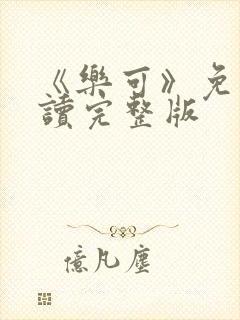 《樂可》免
讀完整版
億凡塵